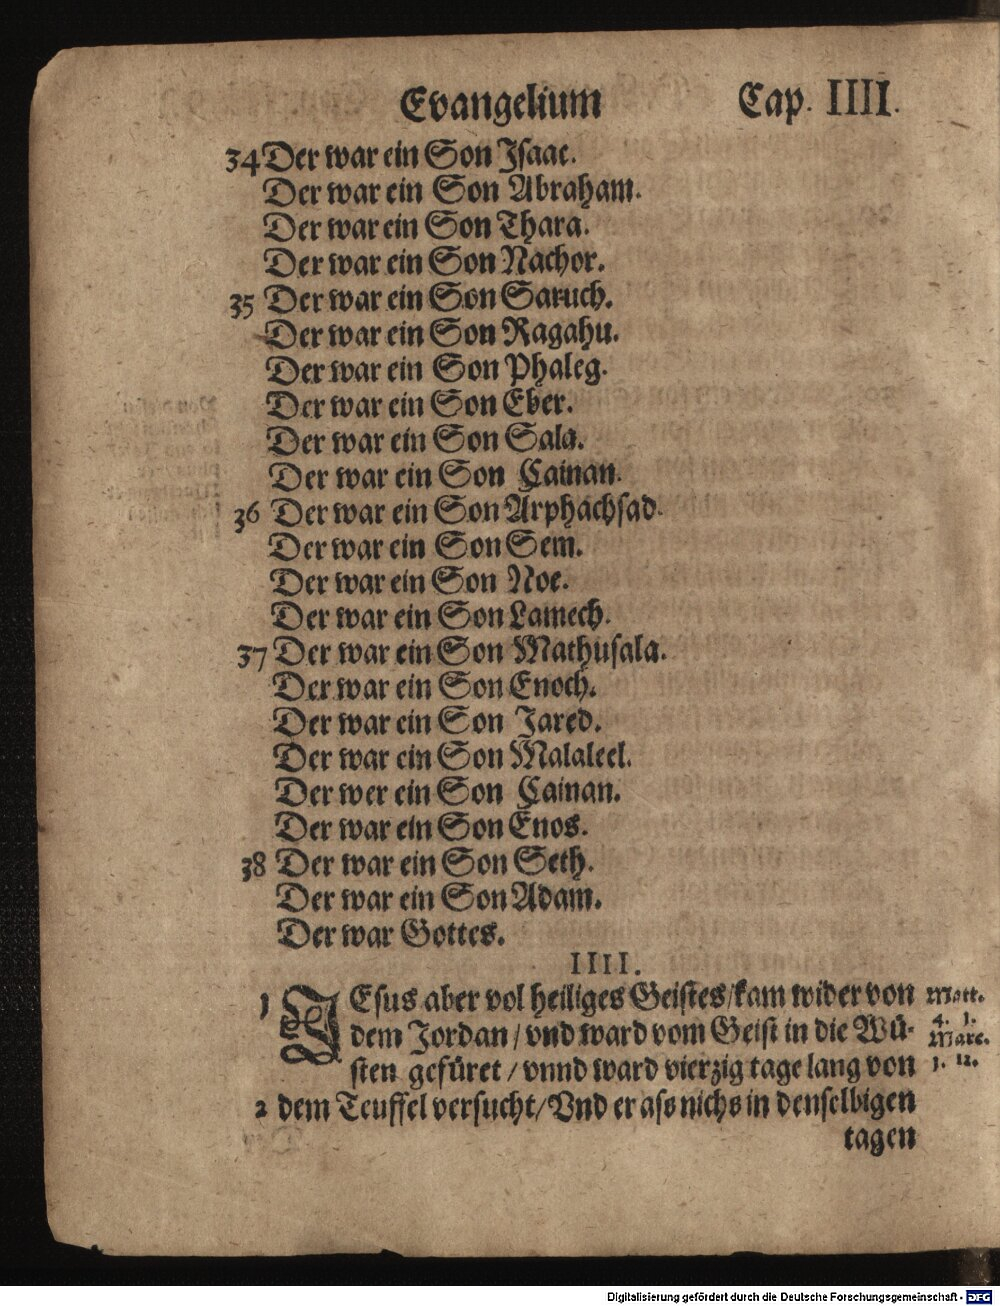 Evangelium Cap. IIII.
34 Der war ein Son Isaac.
Der war ein Son Abraham.
Der war ein Son Thara.
Der war ein Son Nachor.
35 Der war ein Son Saruch.
Der war ein Son Ragahu.
Der war ein Son Phaleg.
Der war ein Son Eber.
Der war ein Son Sala.
Der war ein Son Cainan.
36 Der war ein Son Arphachsad.
Der war ein Son Sem.
Der war ein Son Noe.
Der war ein Son Lamech.
37 Der war ein Son Mathusala.
Der war ein Son Enoch.
Der war ein Son Jared.
Der war ein Son Malaleel.
Der wer ein Son Cainan.
Der war ein Son Enos.
38 Der war ein Son Seth.
Der war ein Son Adam.
Der war Gottes.
IIII.
1 JEsus aber vol heiliges Geistes/kam wider von Matt.
dem Jordan/vnd ward vom Geist in die Wů- 4. 1. Marc.
sten gefůret/vnnd ward vierzig tage lang von 1. 12.
2 dem Teuffel versucht/Vnd er ass nichs in denselbigen
tagen
Digitalisierung gefördert durch die Deutsche Forschungsgemeinschaft - DFG